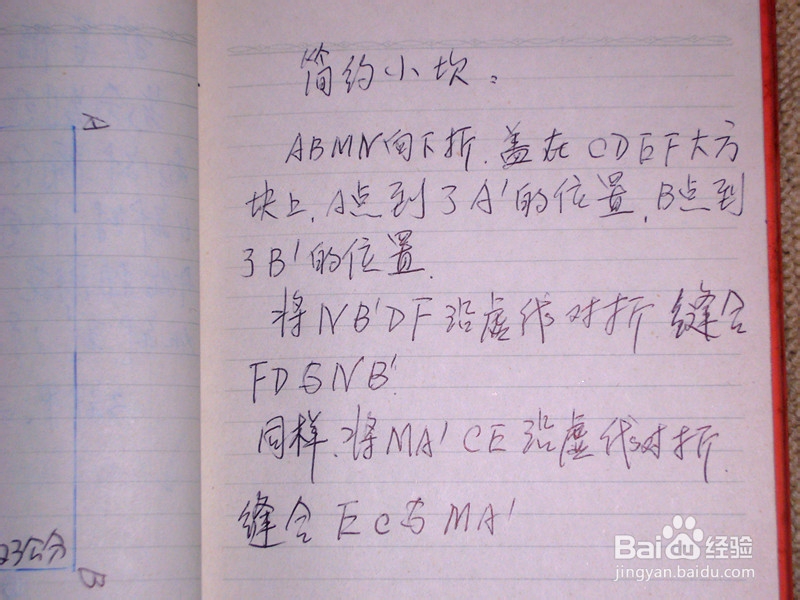 简约小坎:
ABMN向下折.盖在CDEF大方
块上.A点到了A'的位置.B点到
了B'的位置.
将NB'DF沿虚线对折 缝合
FD与NB'.
同样.将MA'CE沿虚线对折.
缝合EC与MA'
A
23公分
B
Bai 经验
jingyan.baidu.com